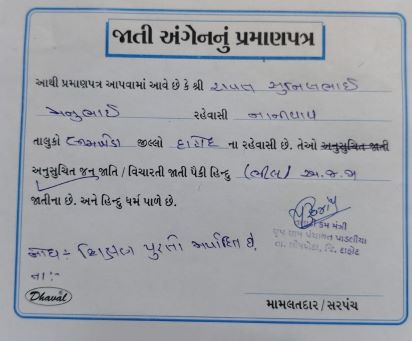 જાતી અંગેનનું પ્રમાણપત્ર
આથી પ્રમાણપત્ર આપવામાં આવે છે કે શ્રી રાવત સુનિલભાઈ
મનુભાઈ રહેવાસી નાનીવાવ
તાલુકો જીલ્લો દાહોદ ના રહેવાસી છે. તેઓ અનુસુચિત જાતી
અનુસુચિત જન જાતિ / વિચારતી જાતી પૈકી હિન્દુ (ભીલ) અ.જ.જ
જાતીના છે. અને હિન્દુ ધર્મ પાળે છે.
તલાટી કમ મંત્રી
ગ્રામ પંચાયત પાડલીયા
જિ. દાહોદ
નોંધઃ- શિક્ષણ પુરતી મર્યાદિત છે.
તા:-
Dhaval
મામલતદાર / સરપંચ